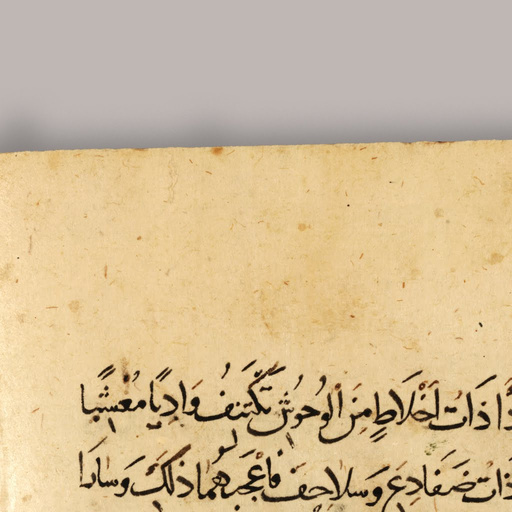 ذَاتُ اَخْلَاطٍ مِنَ الْوُحُوْشِ تَكْتَنِفُ وَادِيًا مُعْشِبًا
ذَاتُ ضَفَادِعَ وَسَلَاحِفَ فَاَعْجَبَهُمَا ذٰلِكَ وَسَارَا